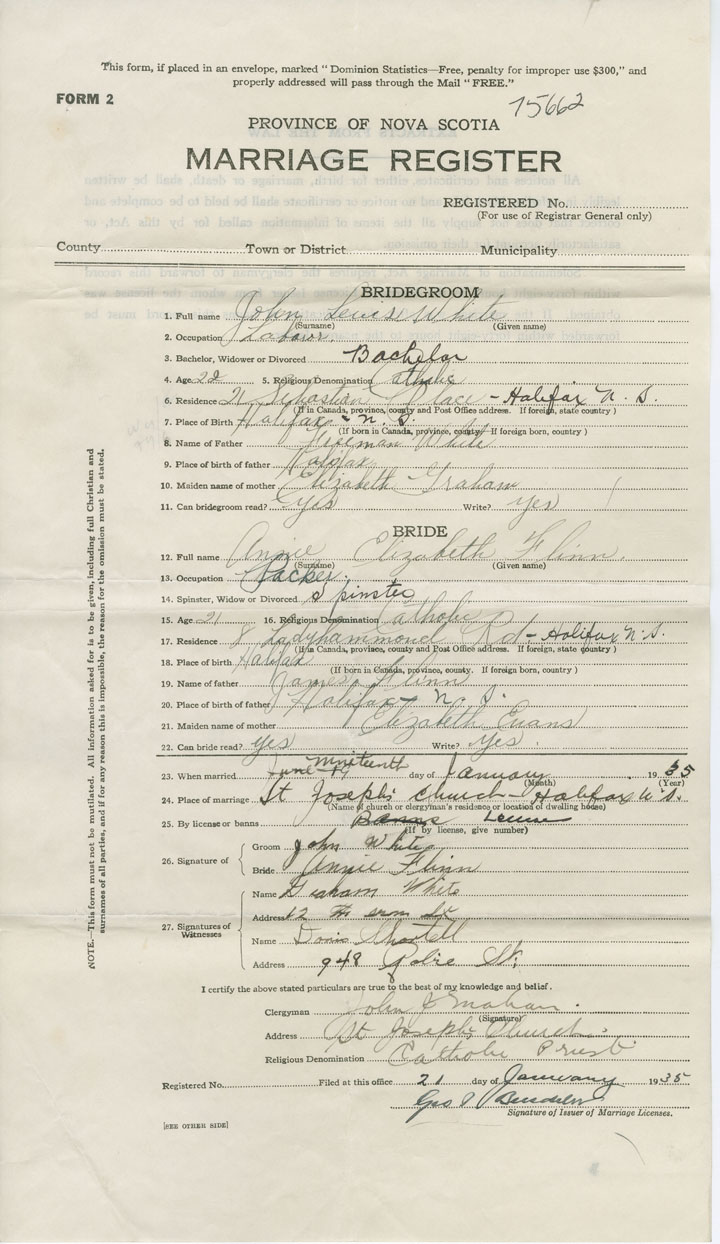 This form, if placed in an envelope, marked "Dominion Statistics—Free, penalty for improper use $300," and
properly addressed will pass through the Mail "FREE."
FORM 2
75662
PROVINCE OF NOVA SCOTIA
MARRIAGE REGISTER
REGISTERED No.
(For use of Registrar General only)
County Town or District Municipality
BRIDEGROOM
1. Full name John Lewis White
(Surname) (Given name)
2. Occupation Laborer.
3. Bachelor, Widower or Divorced Bachelor
4. Age 22 5. Religious Denomination Catholic
6. Residence Sebastian Place - Halifax N. S.
(If in Canada, province, county and Post Office address. If foreign, state country )
7. Place of Birth Halifax - N. S.
(If born in Canada, province, county. If foreign born, country )
8. Name of Father Freeman White
9. Place of birth of father Halifax
10. Maiden name of mother Elizabeth Graham
11. Can bridegroom read? Yes Write? yes
BRIDE
12. Full name Annie Elizabeth Flinn.
(Surname) (Given name)
13. Occupation Packer.
14. Spinster, Widow or Divorced Spinster
15. Age 21 16. Religious Denomination Catholic
17. Residence 8 Ladyhammond Rd - Halifax N. S.
(If in Canada, province, county and Post Office address. If foreign, state country )
18. Place of birth Halifax
(If born in Canada, province, county. If foreign born, country )
19. Name of father James Flinn
20. Place of birth of father Halifax - N. S.
21. Maiden name of mother Elizabeth Evans
22. Can bride read? yes Write? Yes.
23. When married June 19 nineteenth day of January 1935
(Month) (Year)
24. Place of marriage St Joseph's Church - Halifax N. S.
(Name of church or clergyman's residence or location of dwelling house)
25. By license or banns Banns License
(If by license, give number)
26. Signature of
Groom John White
Bride Annie Flinn
27. Signatures of Witnesses
Name Graham White
Address 12 St
Name Doris
Address 948 St.
I certify the above stated particulars are true to the best of my knowledge and belief.
Clergyman John J
(Signature)
Address St Joseph's Church.
Religious Denomination Catholic Priest
Registered No. Filed at this office 21 day of January 1935
Geo
Signature of Issuer of Marriage Licenses.
[SEE OTHER SIDE]
NOTE.—This form must not be mutilated. All information asked for is to be given, including full Christian and
surnames of all parties, and if for any reason this is impossible, the reason for the omission must be stated.